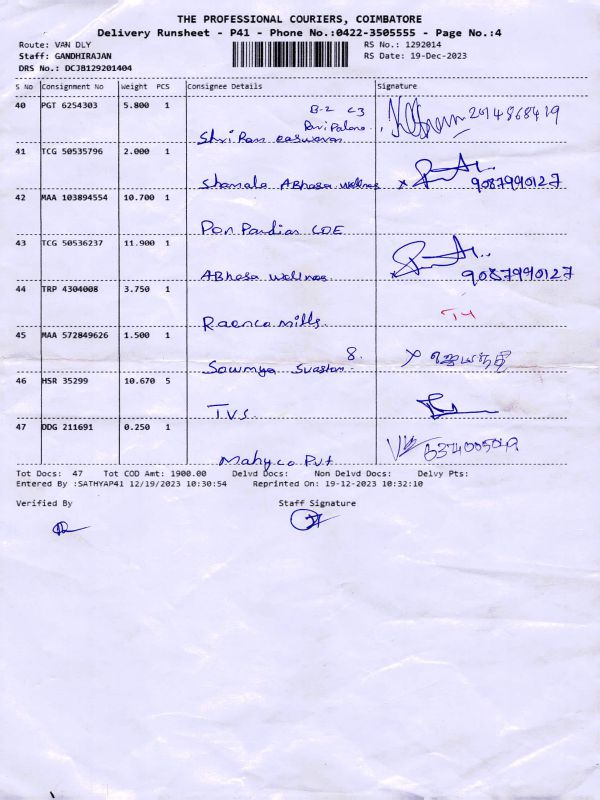 THE PROFESSIONAL COURIERS, COIMBATORE
Delivery Runsheet - P41 - Phone No.:0422-3505555 - Page No.:4
Route: VAN DLY RS No.: 1292014
Staff: GANDHIRAJAN RS Date: 19-Dec-2023
DRS No.: DCJB129201404
S No Consignment No Weight PCS Consignee Details Signature
40 PGT 6254303 5.800 1 B-2 C3
Shri Ram easwaran
41 TCG 50535796 2.000 1
Shamala ABhasa wellnes x 9087990127
42 MAA 103894554 10.700 1
Pon Pandian COE
43 TCG 50536237 11.900 1
ABhasa wellnes x 9087990127
44 TRP 4304008 3.750 1
Raenco mills.
45 MAA 572849626 1.500 1 8.
Sowmya x
46 HSR 35299 10.670 5
TVS.
47 DDG 211691 0.250 1
Mahyco Pvt
Tot Docs: 47 Tot COD Amt: 1900.00 Delvd Docs: Non Delvd Docs: Delvy Pts:
Entered By :SATHYAP41 12/19/2023 10:30:54 Reprinted On: 19-12-2023 10:32:10
Verified By Staff Signature